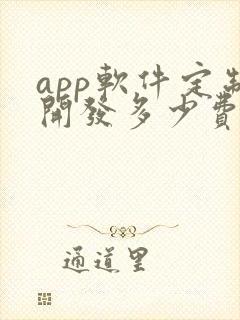 app軟件定制
開發多少費
通道里